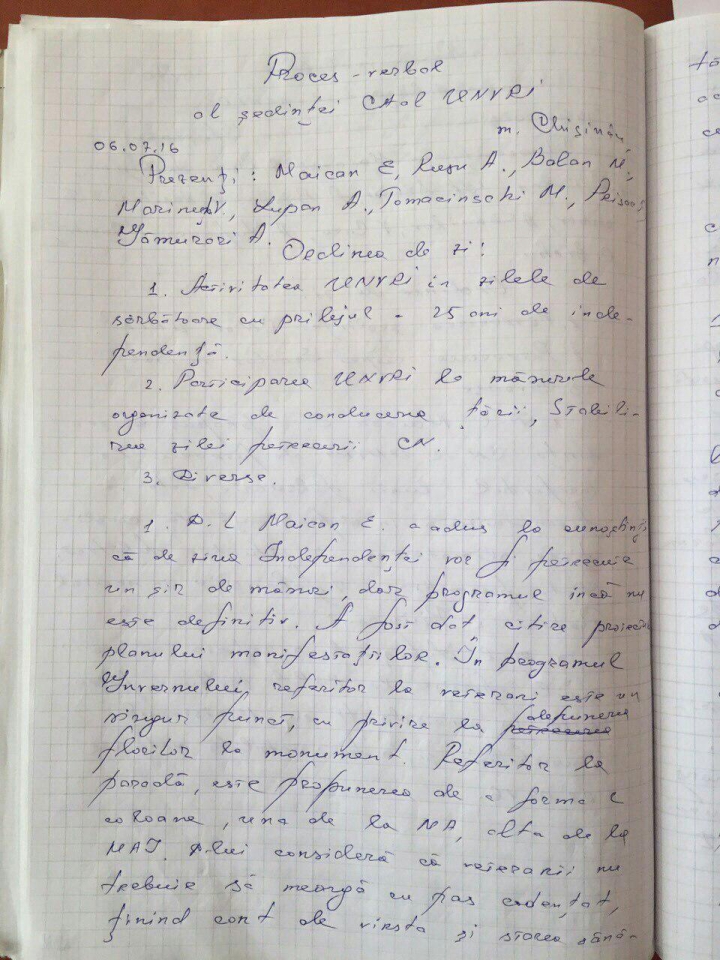 Proces-verbal
al ședinței CA al UNVRI
m. Chișinău
06.07.16
Prezenți: Maican E, Rusu A., Balan M.,
Marineț V., Lupan A., Tomacinschi M.,
Iamurari A.
Ordinea de zi:
1. Activitatea UNVRI în zilele de
sărbătoare cu prilejul - 25 ani de inde-
pendență.
2. Participarea UNVRI la măsurile
organizate de conducerea țării, Stabili-
rea zilei petrecerii CN.
3. Diverse.
1. D. L Maican E. a adus la cunoștință
că de ziua Independenței vor fi petrecute
un șir de măsuri, dar programul încă nu
este definitiv. A fost dat citire proiectul
planului manifestațiilor. În programul
Guvernului, referitor la veterani este un
singur punct, cu privire la depunerea
petrecerea
florilor la monument. Referitor la
paradă, este propunerea de a forma 2
coloane, una de la MA, alta de la
MAI. D-lui consideră că veteranii nu
trebuie să meargă cu pas cadențat,
ținînd cont de vîrsta și starea sănă-